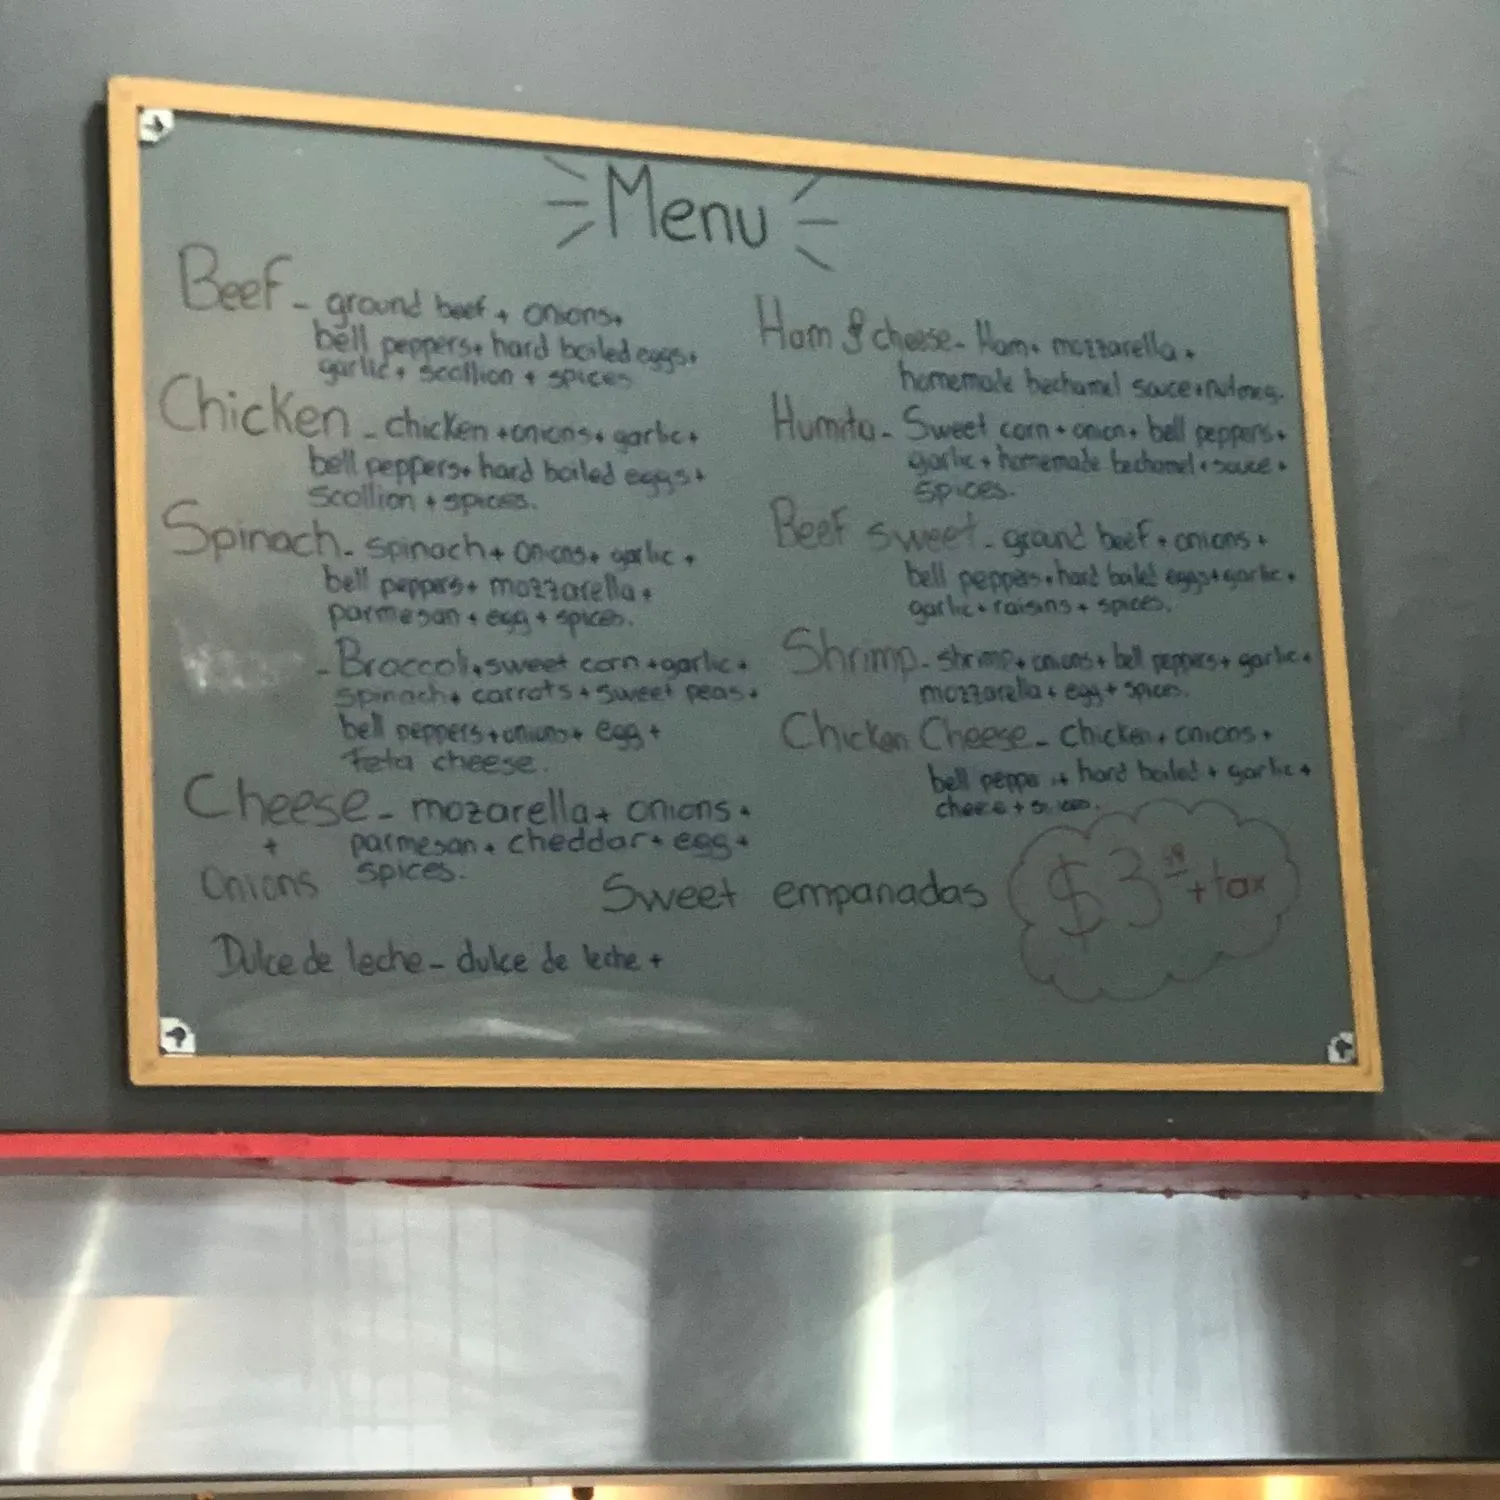 Menu
Beef - ground beef + onions +
bell peppers + hard boiled eggs +
garlic + scallion + spices
Chicken - chicken + onions + garlic +
bell peppers + hard boiled eggs +
scallion + spices.
Spinach - spinach + onions + garlic +
bell peppers + mozzarella +
parmesan + egg + spices.
- Broccoli + sweet corn + garlic +
spinach + carrots + sweet peas +
bell peppers + onions + egg +
feta cheese.
Cheese - mozarella + onions +
+ parmesan + cheddar + egg +
Onions spices.
Ham & cheese - Ham + mozzarella +
homemade bechamel sauce + nutmeg.
Humita - Sweet corn + onion + bell peppers +
garlic + homemade bechamel + sauce +
spices.
Beef sweet - ground beef + onions +
bell peppers + hard boiled eggs + garlic +
garlic + raisins + spices.
Shrimp - shrimp + onions + bell peppers + garlic +
mozzarella + egg + spices.
Chicken Cheese - chicken + onions +
bell peppe + hard boiled + garlic +
cheese +
Sweet empanadas
$3 + tax
Dulce de leche - dulce de leche +